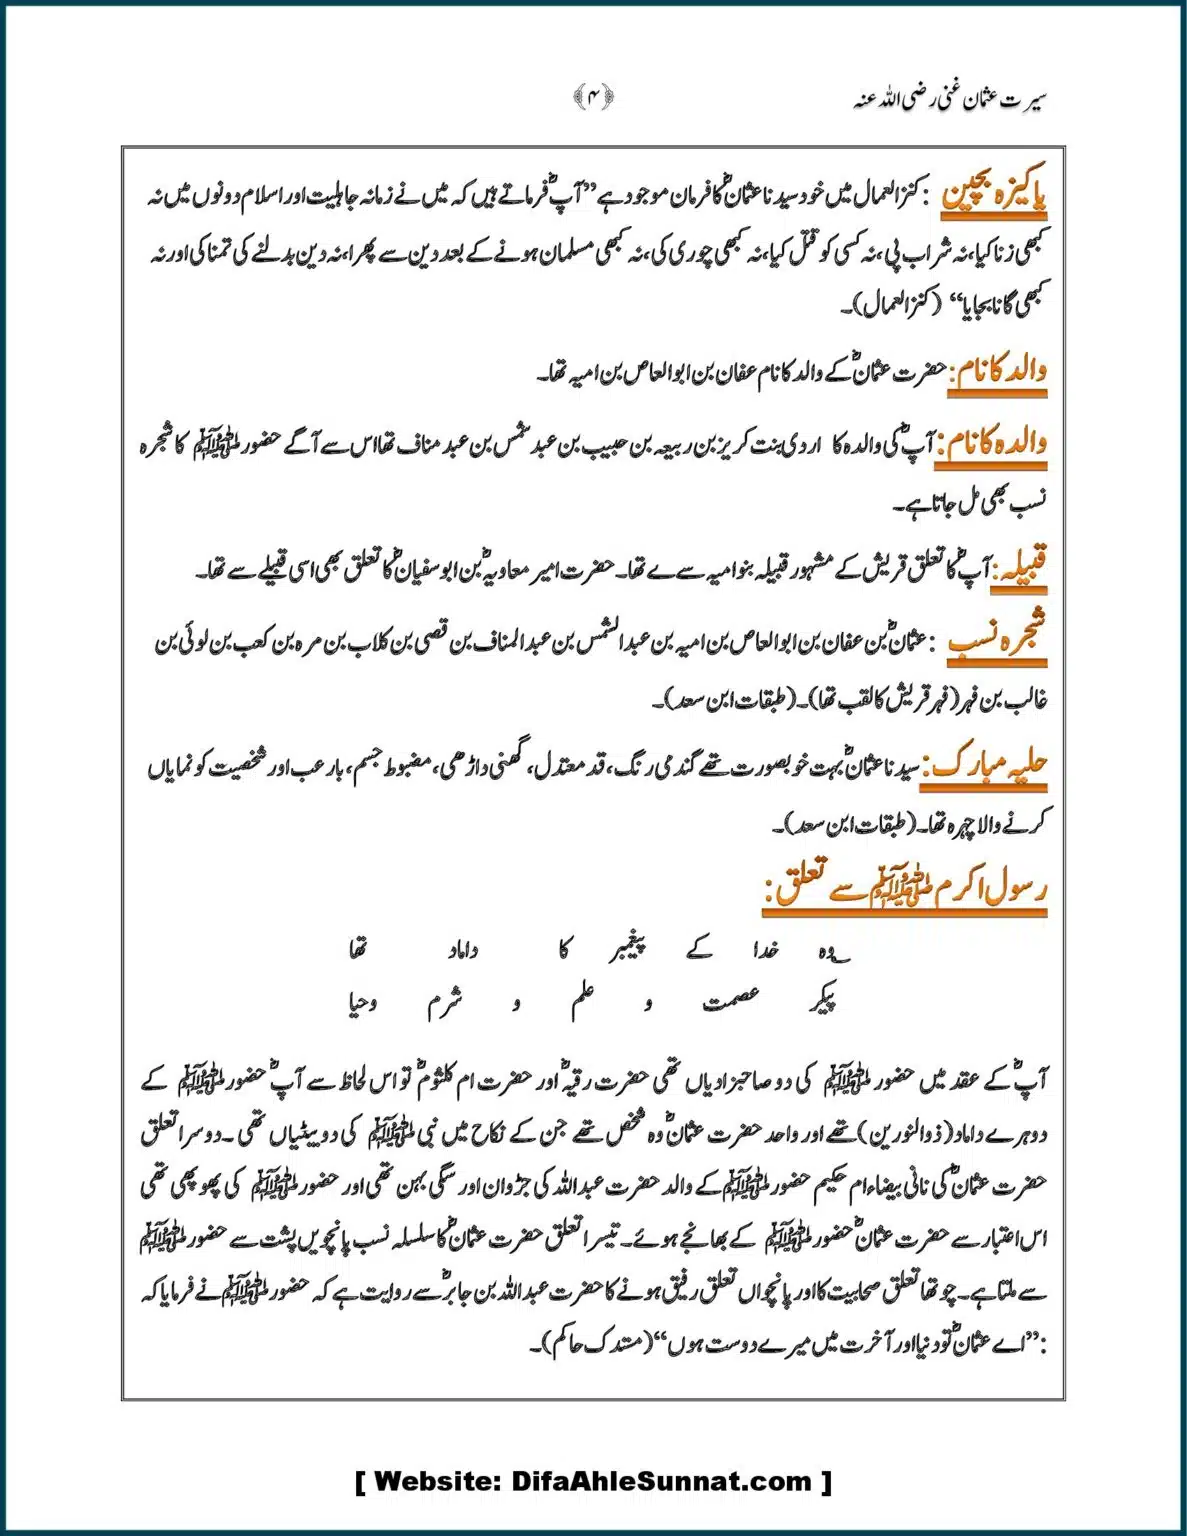 سیرت عثمان غنی رضی اللہ عنہ
﴿۴﴾
پاکیزہ بچپن : کنزالعمال میں خود سیدنا عثمانؓ کا فرمان موجود ہے ”آپؓ فرماتے ہیں کہ میں نے زمانہ جاہلیت اور اسلام دونوں میں نہ
کبھی زنا کیا،نہ شراب پی،نہ کسی کو قتل کیا،نہ کبھی چوری کی،نہ کبھی مسلمان ہونے کے بعد دین سے پھرا،نہ دین بدلنے کی تمنا کی اور نہ
کبھی گانا بجایا“ (کنزالعمال)۔
والد کا نام: حضرت عثمانؓ کے والد کا نام عفان بن ابوالعاص بن امیہ تھا۔
والدہ کا نام: آپؓ کی والدہ کا اردی بنت کریز بن ربیعہ بن حبیب بن عبد شمس بن عبد مناف تھا اس سے آگے حضور ﷺ کا شجرہ
نسب بھی مل جاتا ہے۔
قبیلہ: آپؓ کا تعلق قریش کے مشہور قبیلہ بنوامیہ سے ے تھا۔ حضرت امیر معاویہؓ بن ابوسفیانؓ کا تعلق بھی اسی قبیلے سے تھا۔
شجرہ نسب : عثمانؓ بن عفان بن ابوالعاص بن امیہ بن عبدالشمس بن عبدالمناف بن قصی بن کلاب بن مرہ بن کعب بن لوئی بن
غالب بن فہر(فہر قریش کا لقب تھا)۔(طبقات ابن سعد)۔
حلیہ مبارک: سیدنا عثمانؓ بہت خوبصورت تھے گندمی رنگ، قد معتدل، گھنی داڑھی، مضبوط جسم، بارعب اور شخصیت کو نمایاں
کرنے والا چہرہ تھا۔(طبقات ابن سعد)۔
رسول اکرم ﷺ سے تعلق:
؎وہ خدا کے پیغمبر کا داماد تھا
پیکر عصمت و علم و شرم وحیا
آپؓ کے عقد میں حضور ﷺ کی دو صاحبزادیاں تھی حضرت رقیہؓ اور حضرت ام کلثومؓ تو اس لحاظ سے آپؓ حضور ﷺ کے
دوہرے داماد(ذوالنورین) تھے اور واحد حضرت عثمانؓ وہ شخص تھے جن کے نکاح میں نبی ﷺ کی دو بیٹیاں تھی ۔دوسرا تعلق
حضرت عثمانؓ کی نانی بیضاء ام حکیم حضور ﷺ کے والد حضرت عبداللہ کی جڑوان اور سگی بہن تھی اور حضور ﷺ کی پھوپھی تھی
اس اعتبار سے حضرت عثمانؓ حضور ﷺ کے بھانجے ہوئے۔ تیسرا تعلق حضرت عثمانؓ کا سلسلہ نسب پانچویں پشت سے حضور ﷺ
سے ملتا ہے۔ چوتھا تعلق صحابیت کا اور پانچواں تعلق رفیق ہونے کا حضرت عبداللہ بن جابرؓ سے روایت ہے کہ حضور ﷺ نے فرمایا کہ
:”اے عثمانؓ تو دنیا اور آخرت میں میرے دوست ہوں“(مستدک حاکم)۔
[ Website: DifaAhleSunnat.com ]